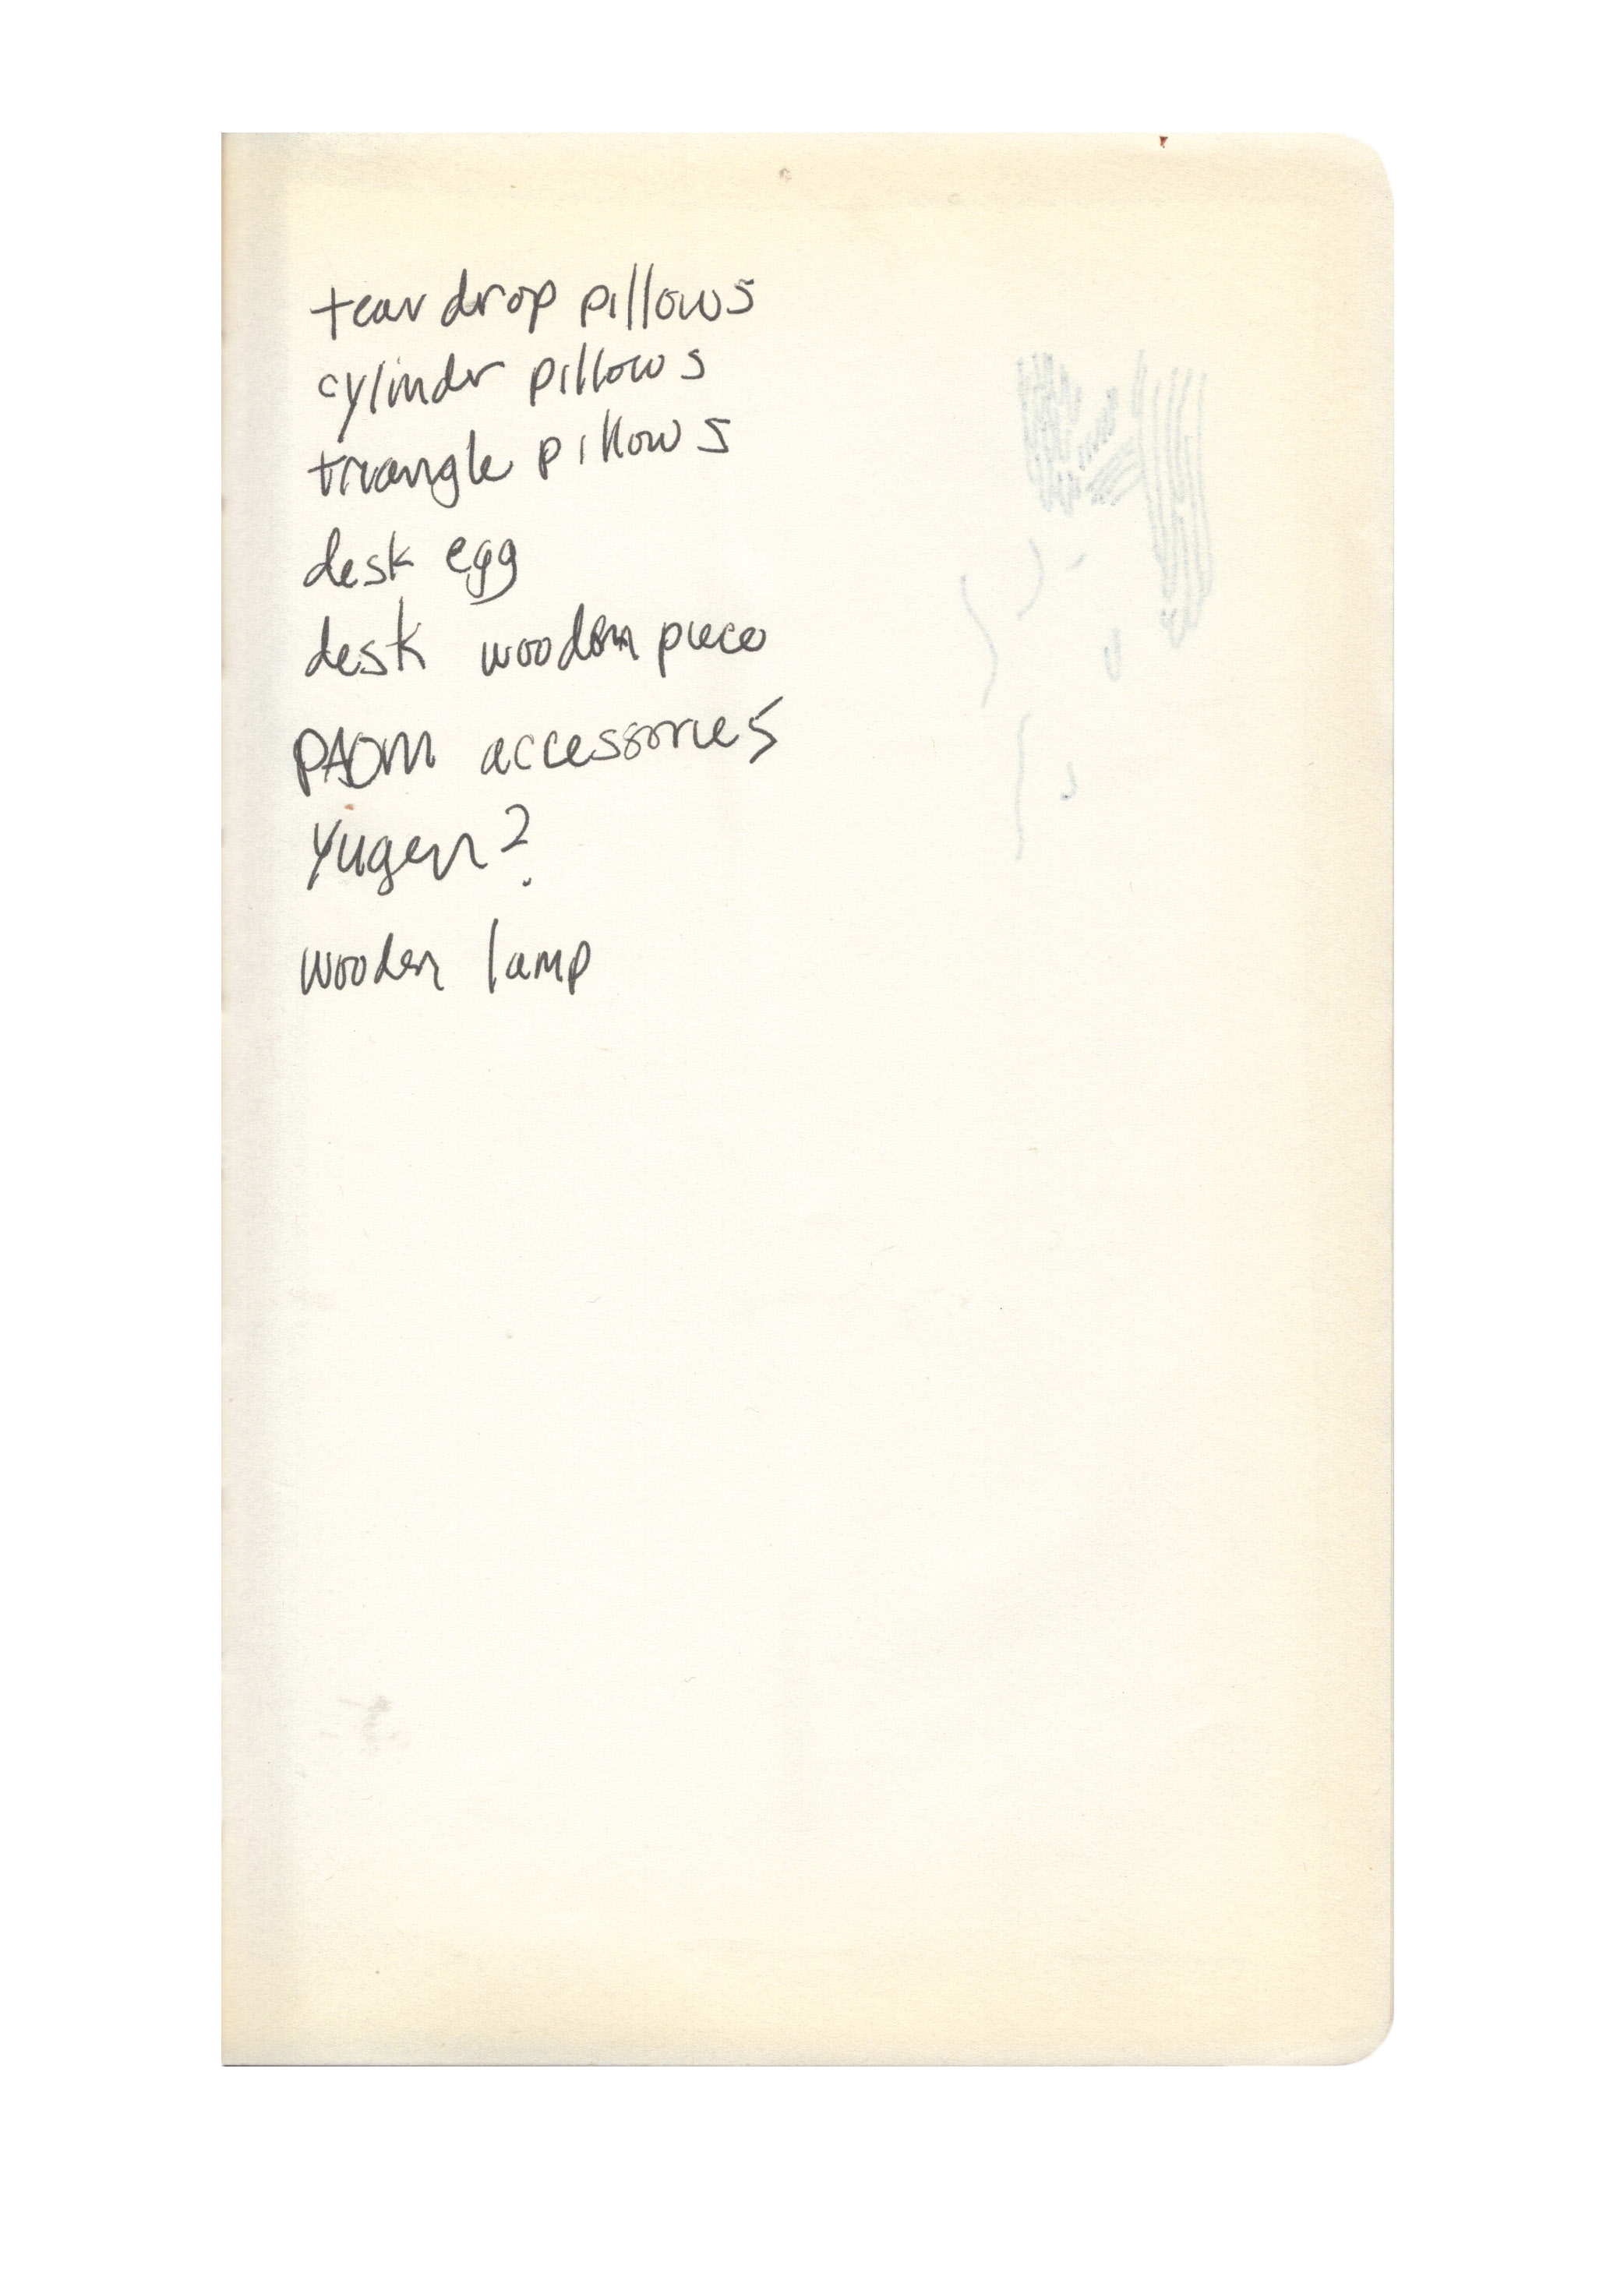 tear drop pillows
cylinder pillows
triangle pillows
desk egg
desk wooden piece
PAOM accessories
Yugen?
wooden lamp